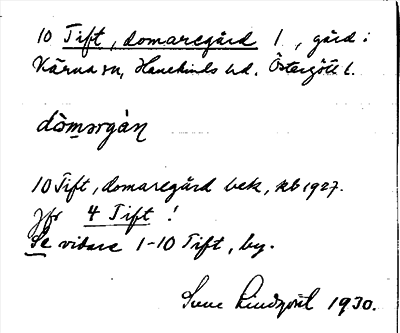 10 Tift, domaregård 1, gård i
Kärna sn, Hanekinds hd. Östergötl l.
dòmərgán
10 Tift, domaregård bek, kb 1927.
Jfr 4 Tift!
Se vidare 1-10 Tift, by.
Sven Lindqvist 1930.